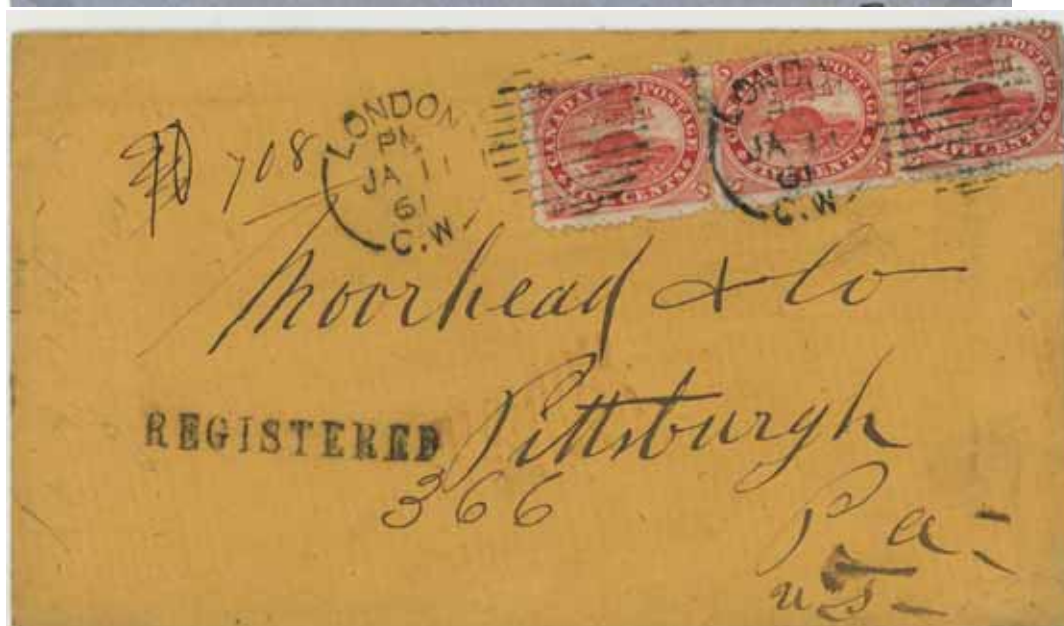 LONDON
PM
JA 11
61
C.W.
CANADA POSTAGE
FIVE CENTS
5
CANADA POSTAGE
FIVE CENTS
5
LONDON
JA 11
61
C.W.
CANADA POSTAGE
FIVE CENTS
5
708
Moorhead & Co
REGISTERED
Pittsburgh
366
Pa
U S